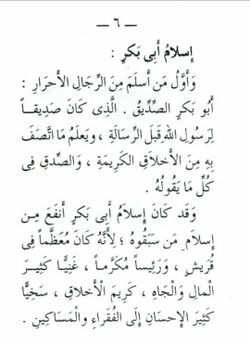 — ٦ —
إسلامُ أبى بَكرٍ :
وَأوَّلُ مَن أسلَمَ مِنَ الرِّجالِ الأحرَارِ :
أبُو بَكرٍ الصِّدِّيقُ . الَّذِى كَانَ صَدِيقاً
لِرسُولِ اللهِ قَبلَ الرِّسَالَةِ ، وَيعلَمُ مَا اتَّصَفَ
بِهِ مِنَ الأخلاَقِ الكَرِيمَةِ ، وَالصِّدقِ فِى
كُلِّ مَا يَقُولُهُ .
وَقَد كَانَ إسلاَمُ أبِى بَكرٍ أنفَعَ مِن
إسلاَمِ مَن سَبَقُوهُ ؛ لِأنَّهُ كَانَ مُعَظَّماً فِى
قُرَيشٍ ، وَرَئِيساً مُكَرَّماً ، غَنِيًّا كَثِيرَ
المَالِ وَالجَاهِ ، كَرِيمَ الأخلاَقِ ، سَخِيًّا
كَثِيرَ الإحسَانِ إلَى الفُقَرَاءِ وَالمَسَاكِينِ .